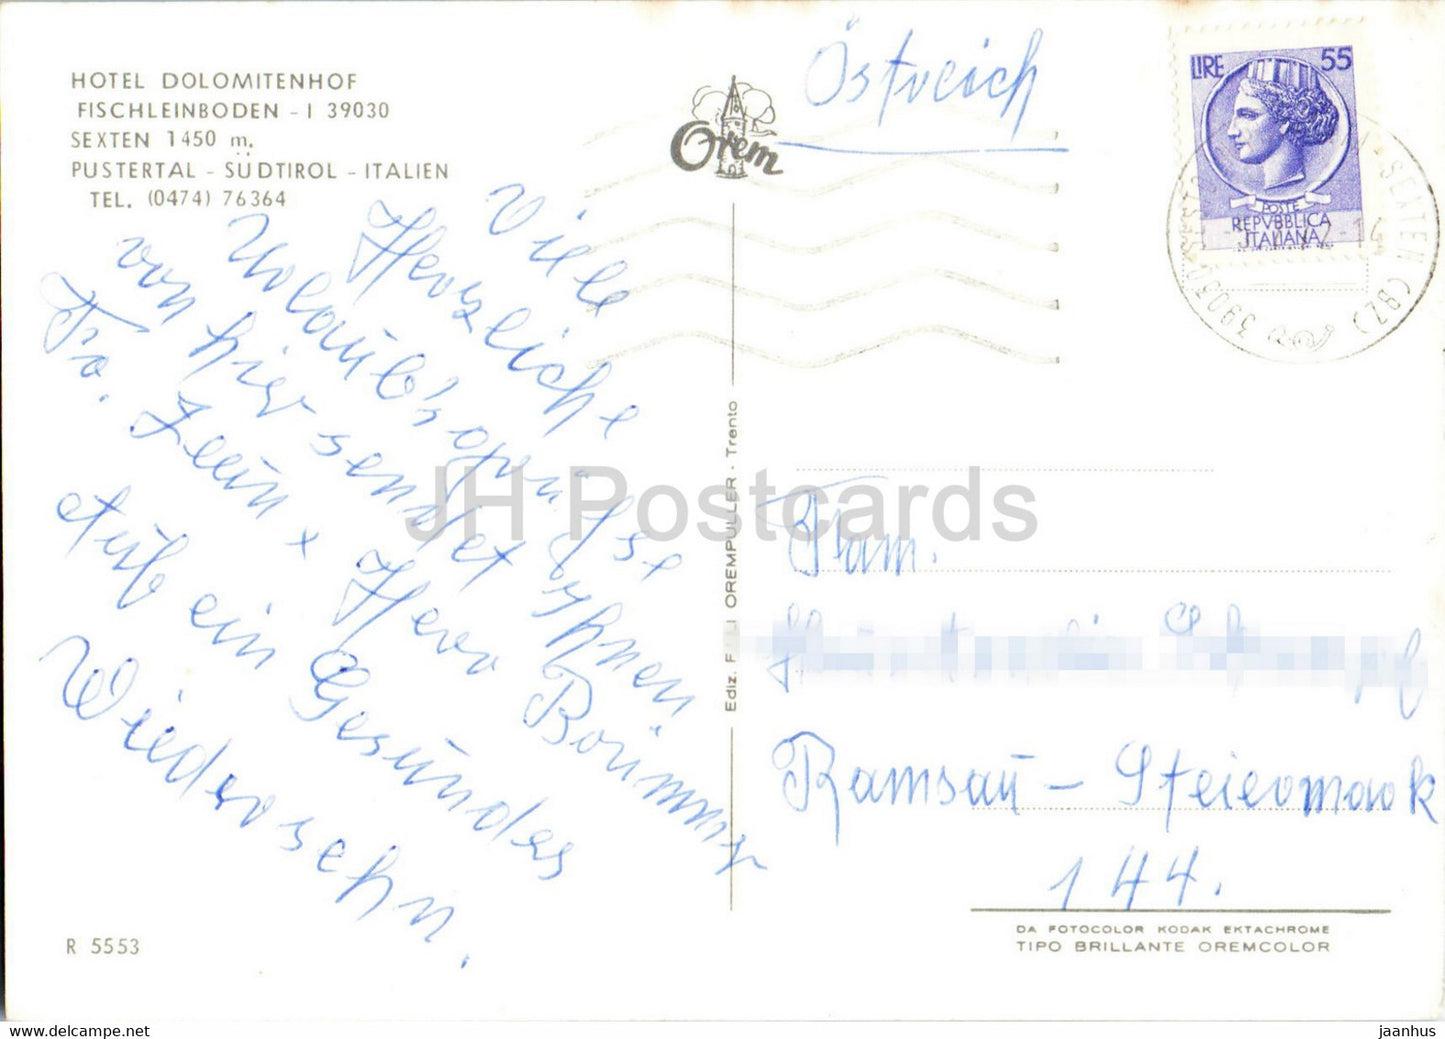 HOTEL DOLOMITENHOF
FISCHLEINBODEN - I 39030
SEXTEN 1450 m.
PUSTERTAL - SÜDTIROL - ITALIEN
TEL. (0474) 76364
Orem
Östreich
LIRE 55
POSTE
REPVBBLICA
ITALIANA
39030 SEXTEN (BZ)
Viele
Herzliche
Urlaub'sgrüsse
von hier sendet Ihnen
Fr. Leun + Herr
Auf ein Gesundes
Wiedersehn.
JH Postcards
Ediz. F.LLI OREMPULLER - Trento
Fam.
Ramsaū - Steiermark
144.
R 5553
DA FOTOCOLOR KODAK EKTACHROME
TIPO BRILLANTE OREMCOLOR
jaanhus
https://www.ebay.com/usr/jaanhus